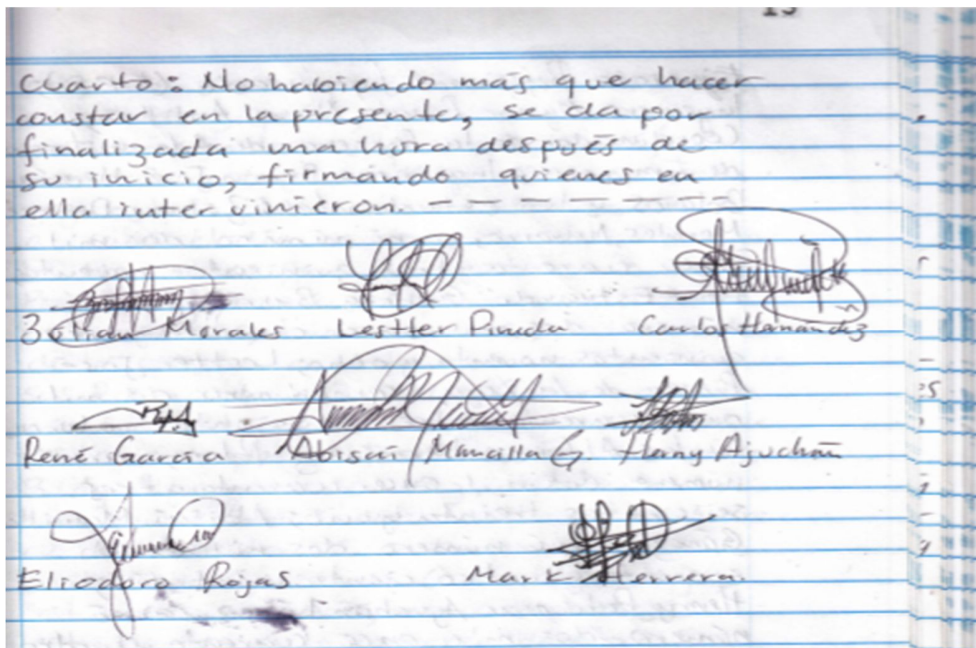 Cuarto: No habiendo más que hacer
constar en la presente, se da por
finalizada una hora después de
su inicio, firmando quienes en
ella intervinieron. - - - - - - - -
Morales Lesther Pineda Carlos Hernández
René García Abisai Mancilla G. Heny Ajuchán
Eliodoro Rojas Mark Herrera.